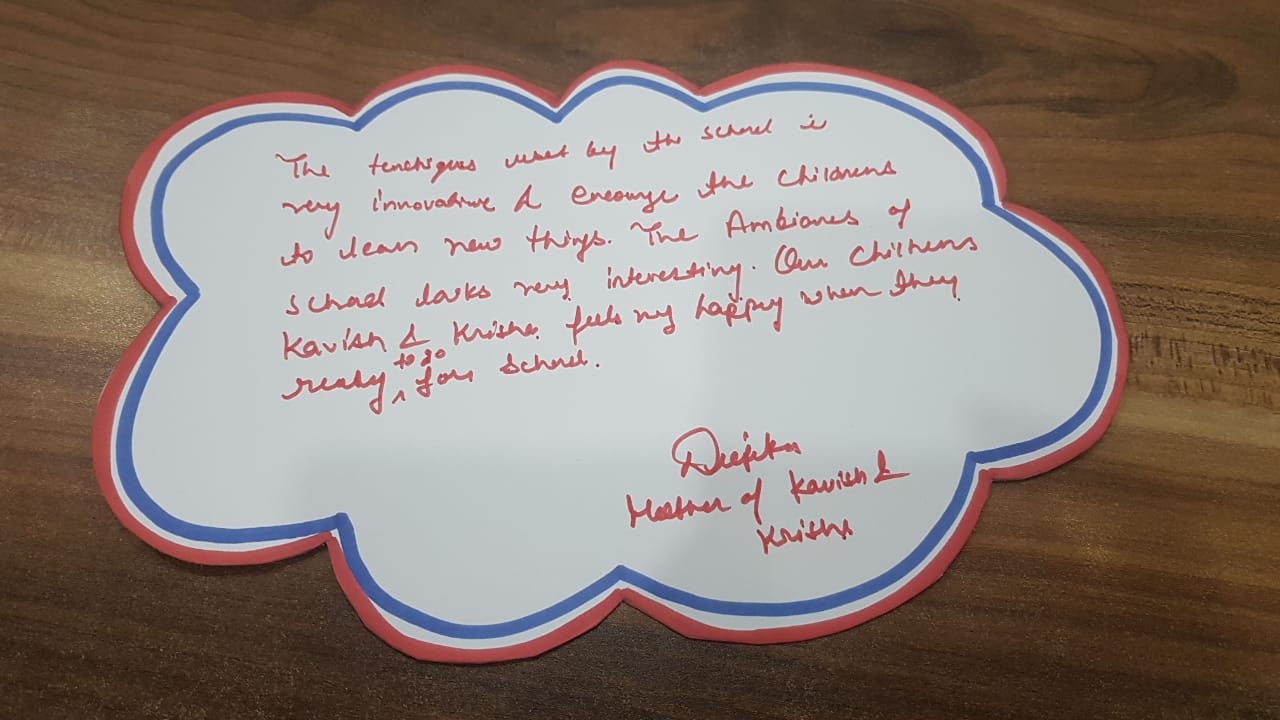 The tenchiques used by the school is
very innovative & encourge the childrens
to learn new things. The Ambiances of
school looks very interesting. Our Childrens
Kavish & Krisha feels very happy when they
ready to go for School.
Deepika
Mother of Kavish &
Krisha